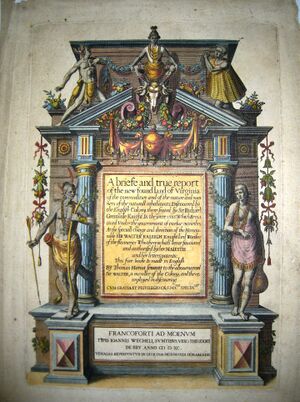 A briefe and true report
of the new found land of Virginia
of the commodities and of the nature and man
ners of the naturall inhabitants. Discouered by
the English Colony there seated by Sir Richard
Greinuile Knight In the yeere 1585. Which Rema
ined Vnder the gouernement of twelue monethes,
At the speciall charge and direction of the Honou
rable SIR WALTER RALEIGH Knight lord Warden
of the stanneries Who therein hath beene fauoured
and authorised by her MAIESTIE
and her letters patents:
This fore booke Is made in English
By Thomas Hariot seruant to the abouenamed
Sir WALTER, a member of the Colony, and there
imployed in discouering
CVM GRATIA ET PRIVILEGIO CÆS. MATIS SPECIALI
FRANCOFORTI AD MOENVM
TYPIS IOANNIS WECHELI, SVMTIBVS VERO THEODORI
DE BRY ANNO CIƆ IƆ XC.
VENALES REPERIVNTVR IN OFFICINA SIGISMVNDI FEIRABENDII